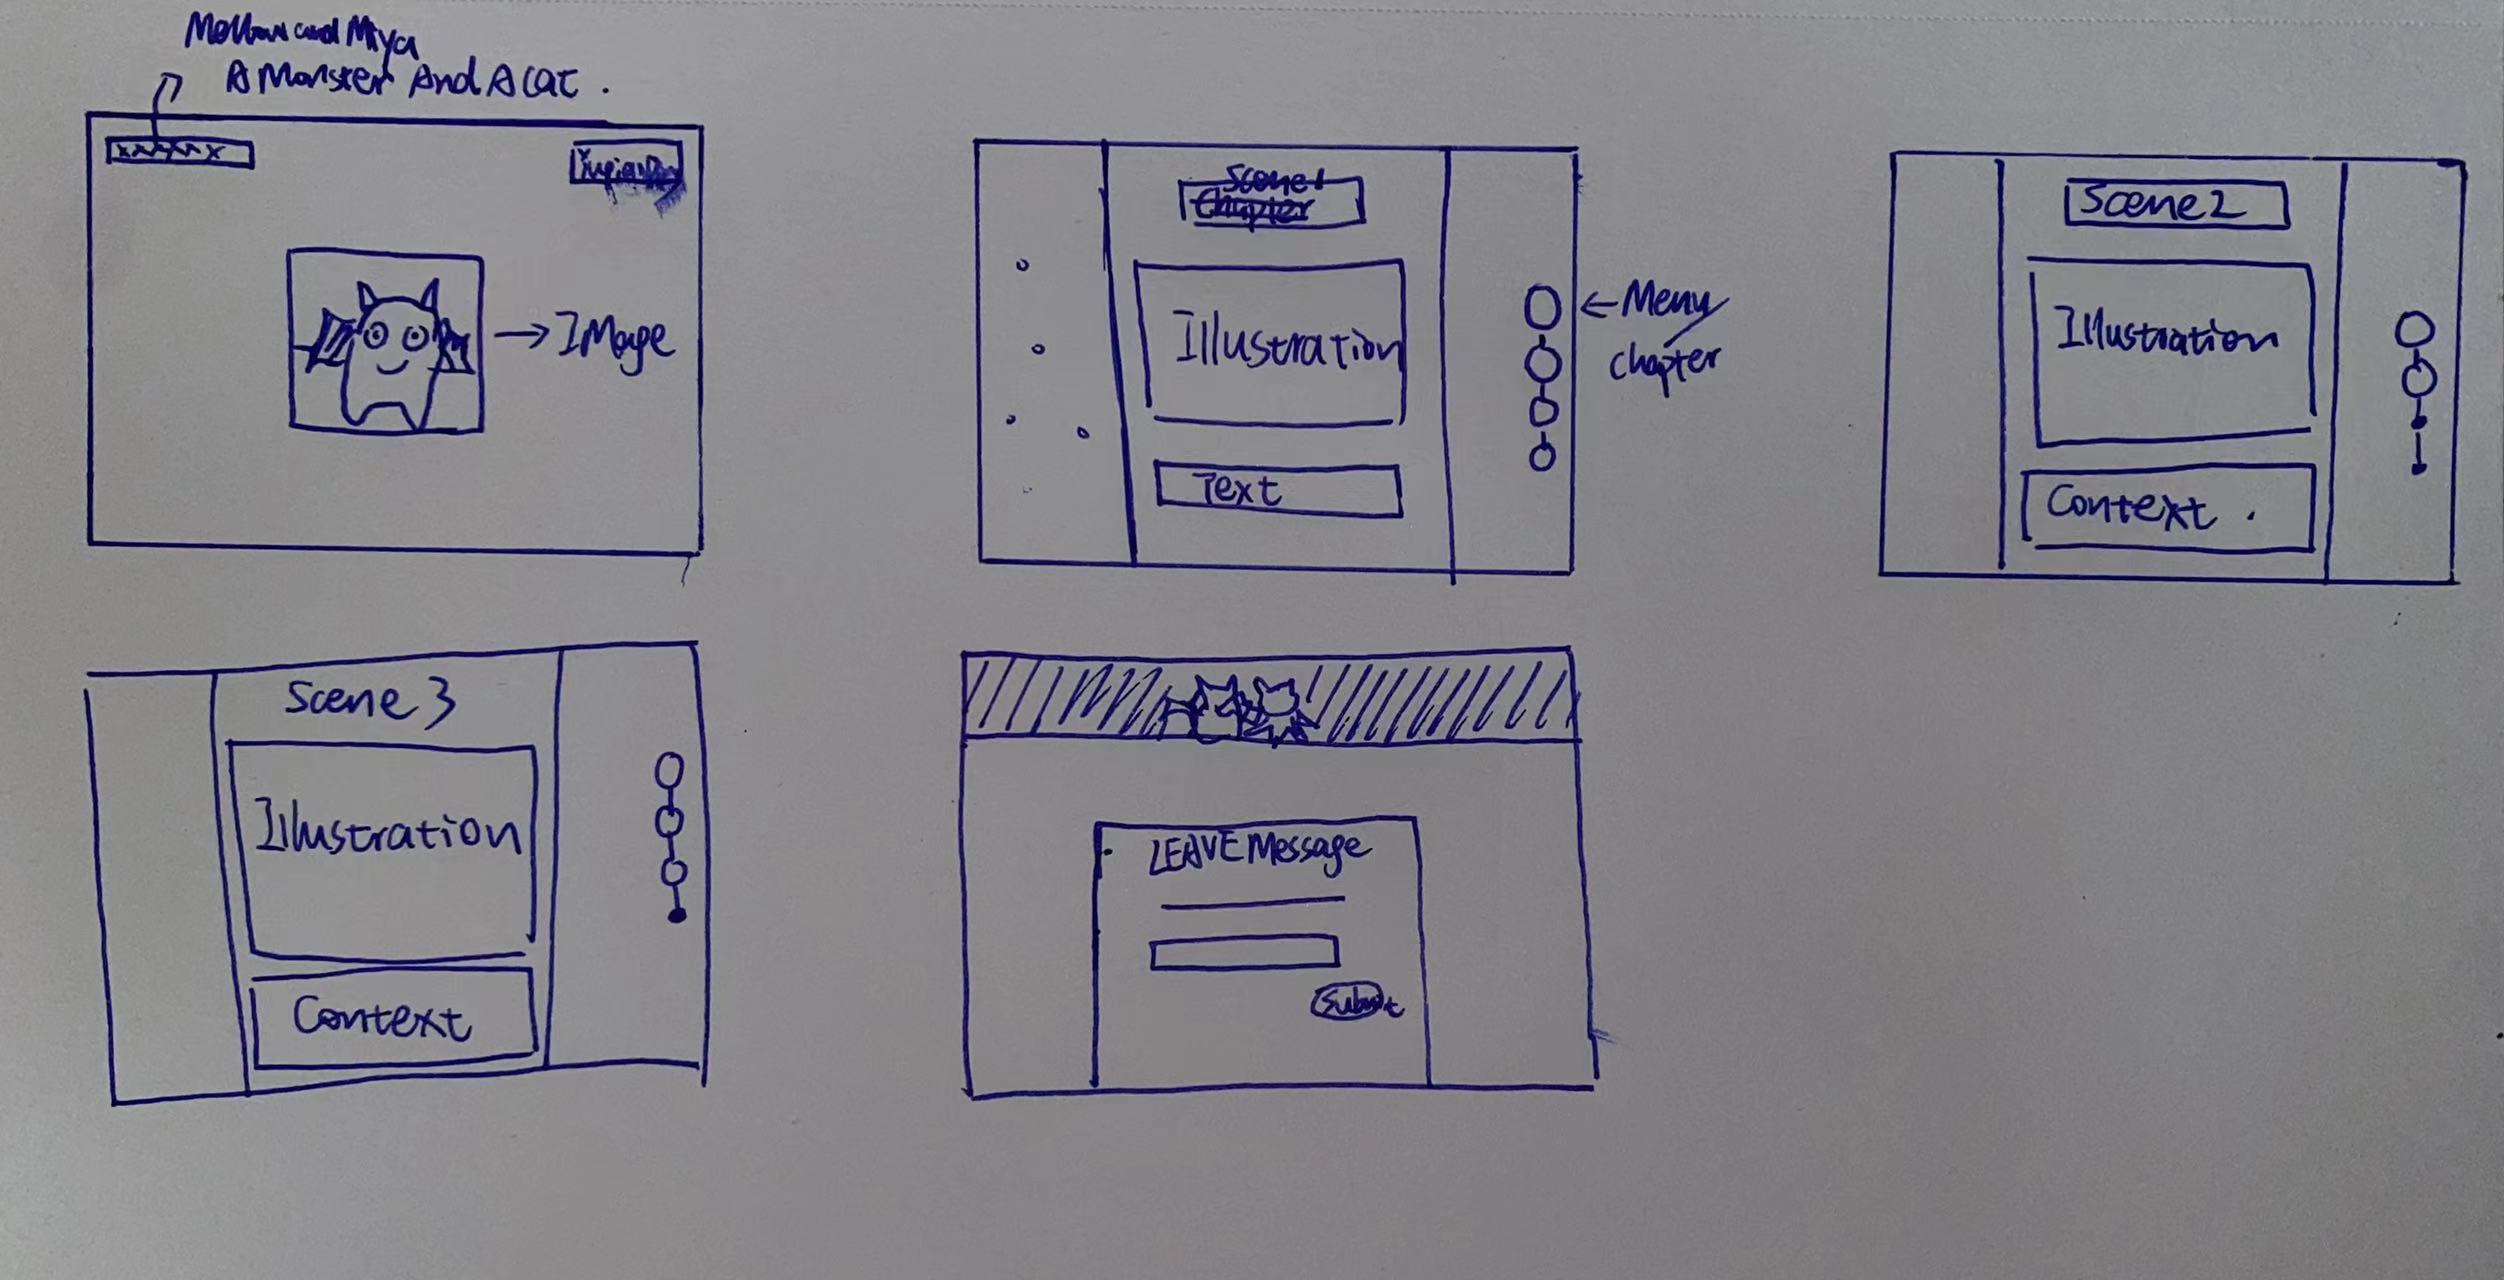 and Miya
A Monster And A Cat .
xxxxx x
IMage
Scene1
Chapter
Illustration
Text
← Menu/
chapter
Scene2
Illustration
Context .
Scene 3
Illustration
Context
LEAVE Message
Submit